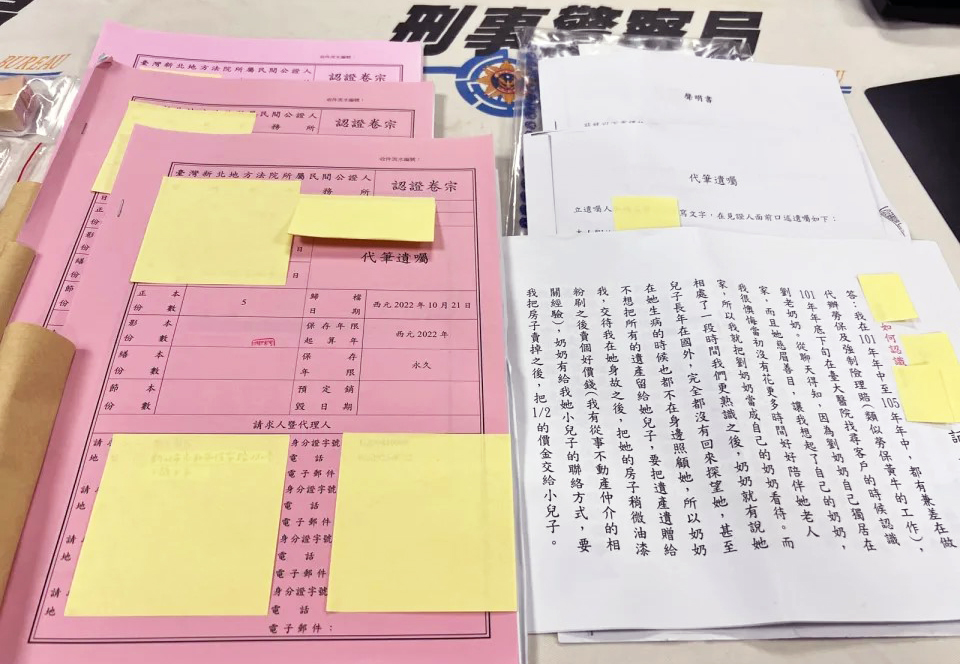 刑事警察局
BUREAU
臺灣新北地方法院所屬民間公證人
認證卷宗
收件流水編號：
認證卷宗
務所
收件流水編號：
臺灣新北地方法院所屬民間公證人
務所
認證卷宗
日
日
代筆遺囑
正本份數
5
歸檔日期
西元 2022 年 10 月 21 日
影本份數
保存年限起算年
西元 2022 年
繕本份數
保存年限
永久
節本份數
預定銷毀日期
請求人暨代理人
身分證字號
電話
電子郵件
身分證字號
電話
電子郵件
身分證字號
電話
電子郵件
身分證字號
電話
電子郵件：
聲明書
代筆遺囑
立遺囑人
寫文字，在見證人面前口述遺囑如下：
如何認識
答：我在101年年中至105年年中，都有兼差在做
代辦勞保及強制險理賠(類似勞保黃牛的工作)，
101年年底下旬在臺大醫院找尋客戶的時候認識
劉老奶奶，從聊天得知，因為劉奶奶自己獨居在
家，而且她慈眉善目，讓我想起了自己的奶奶，
我很懊悔當初沒有花更多時間好好陪伴她老人
家，所以我就把劉奶奶當成自己的奶奶看待。而
相處了一段時間我們更熟識之後，奶奶就有說她
兒子長年在國外，完全都沒有回來探望她，甚至
在她生病的時候也都不在身邊照顧她，所以奶奶
不想把所有的遺產留給她兒子，要把遺產遺贈給
我，交待我在她身故之後，把她的房子稍微油漆
粉刷之後賣個好價錢(我有從事不動產仲介的相
關經驗)，奶奶有給我她小兒子的聯絡方式，要
我把房子賣掉之後，把1/2的價金交給小兒子。